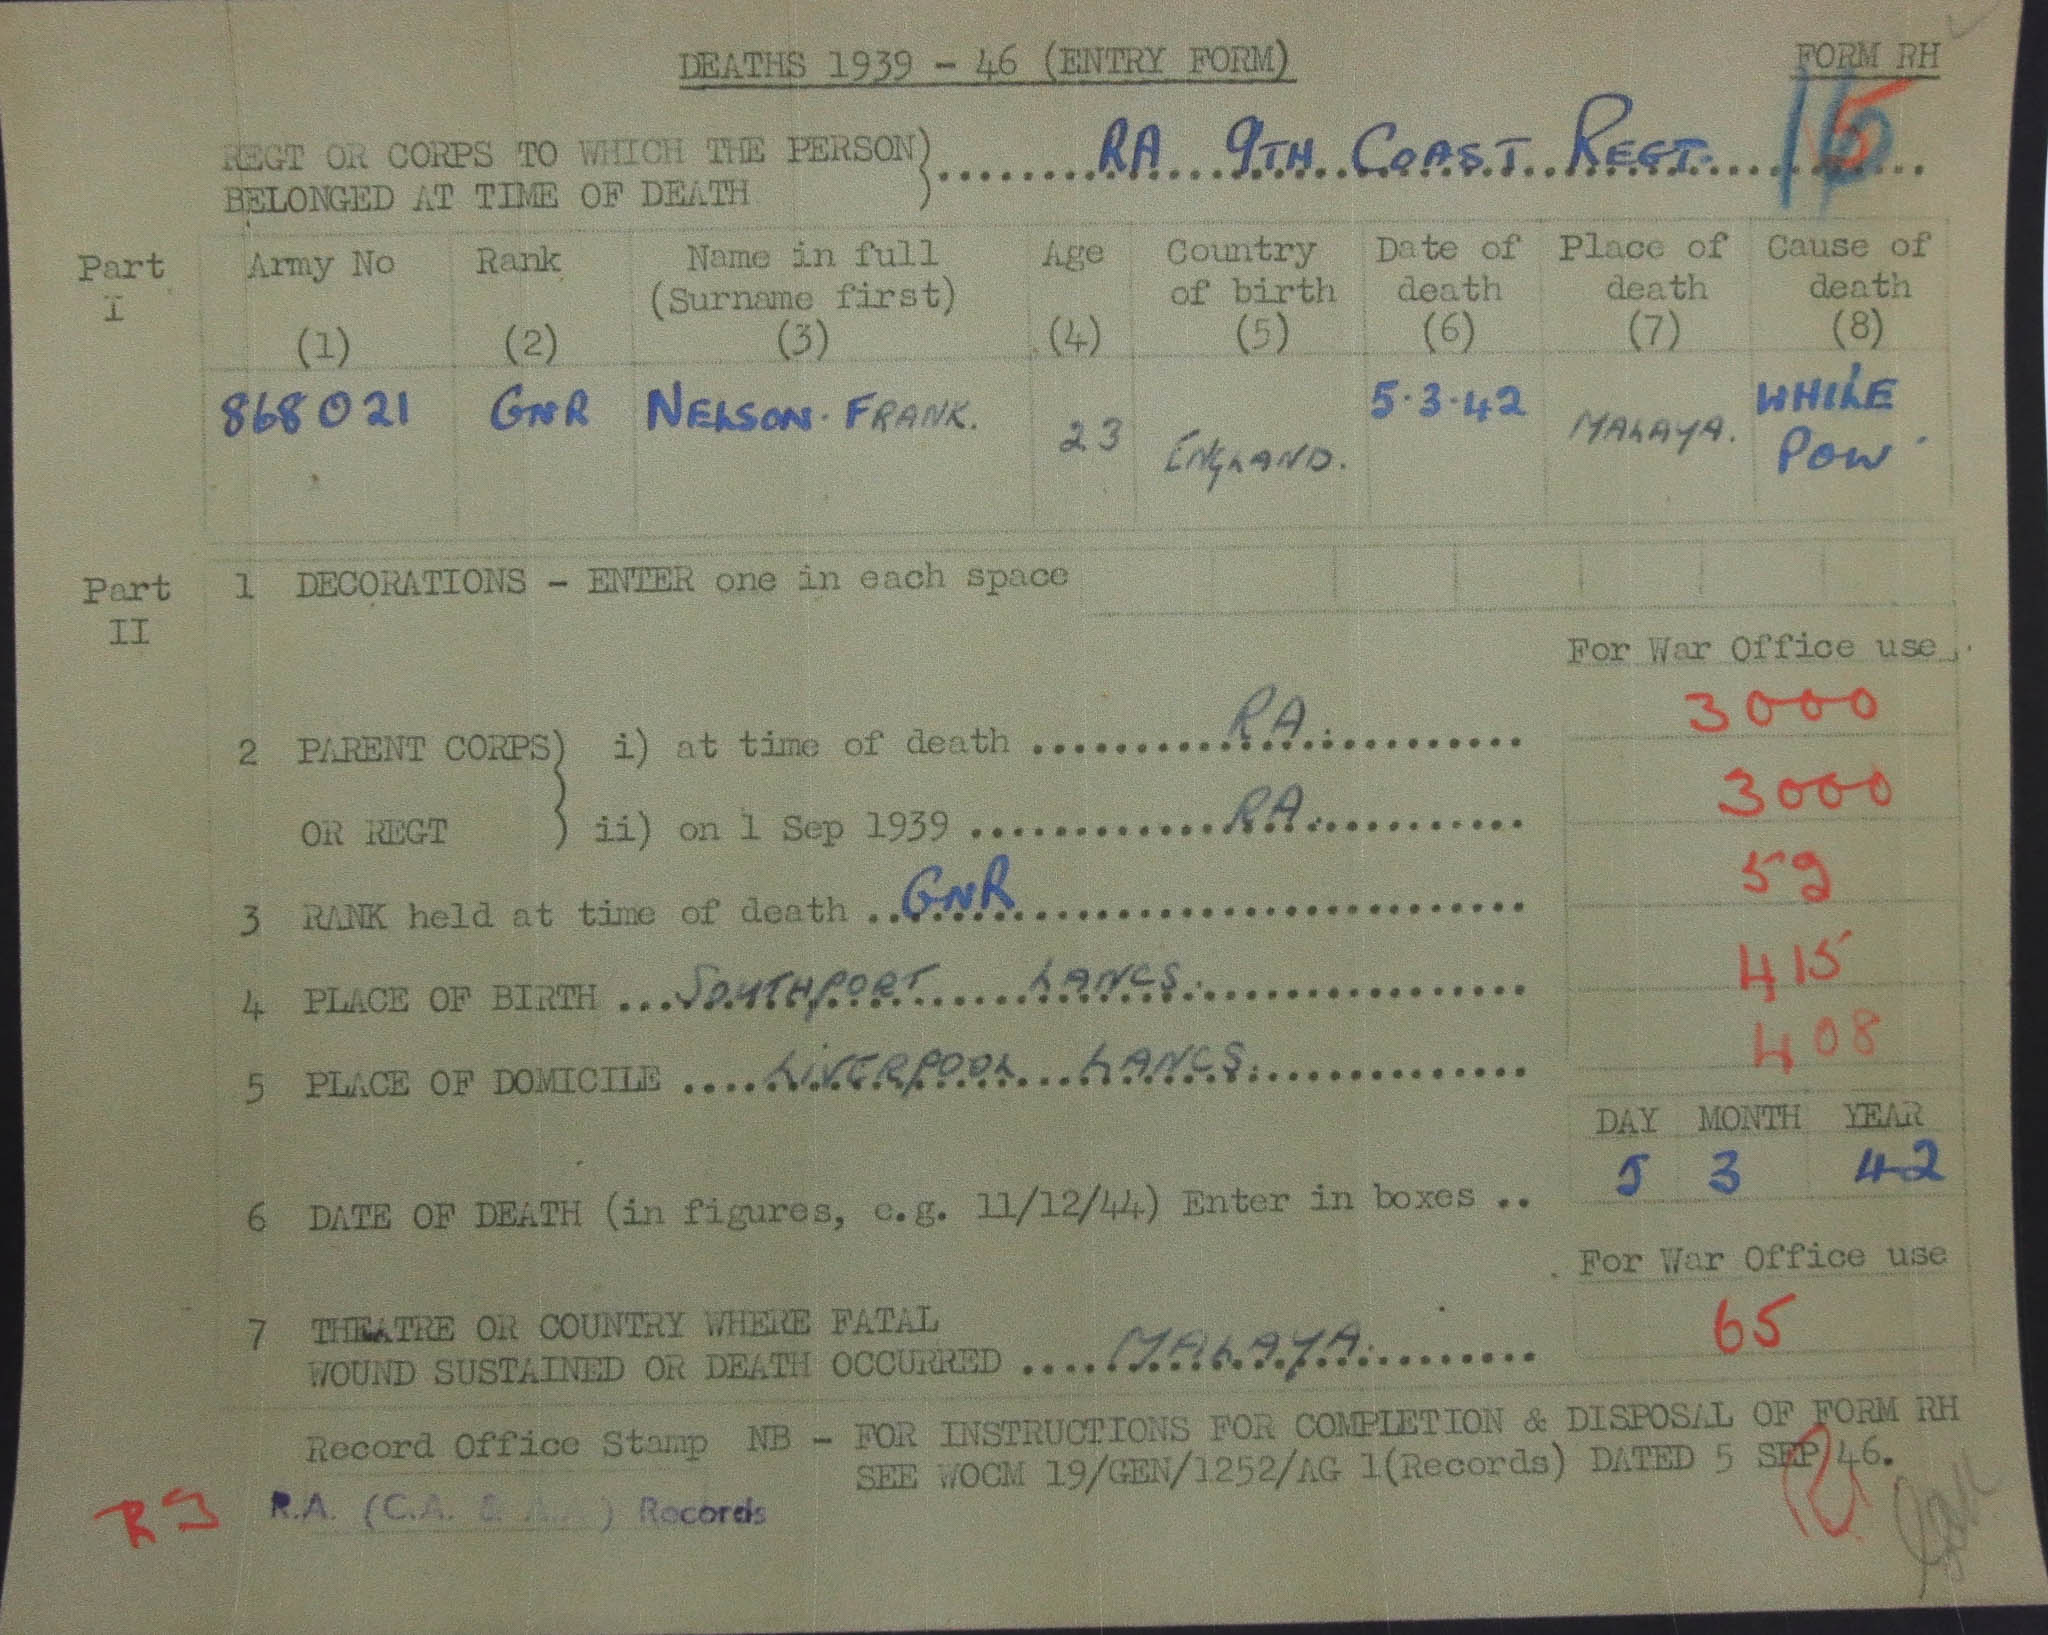 DEATHS 1939 - 46 (ENTRY FORM) FORM RH
REGT OR CORPS TO WHICH THE PERSON) RA 9TH COAST REGT.
BELONGED AT TIME OF DEATH )
Part I
Army No (1) Rank (2) Name in full (Surname first) (3) Age (4) Country of birth (5) Date of death (6) Place of death (7) Cause of death (8)
868021 GNR NELSON. FRANK. 23 ENGLAND. 5.3.42 MALAYA. WHILE POW
Part II
1 DECORATIONS - ENTER one in each space
For War Office use
2 PARENT CORPS) i) at time of death RA. 3000
OR REGT ) ii) on 1 Sep 1939 RA. 3000
3 RANK held at time of death GNR 59
4 PLACE OF BIRTH SOUTHPORT LANCS. 415
5 PLACE OF DOMICILE LIVERPOOL LANCS. 408
DAY MONTH YEAR
6 DATE OF DEATH (in figures, e.g. 11/12/44) Enter in boxes .. 5 3 42
For War Office use
7 THEATRE OR COUNTRY WHERE FATAL
WOUND SUSTAINED OR DEATH OCCURRED MALAYA. 65
Record Office Stamp NB - FOR INSTRUCTIONS FOR COMPLETION & DISPOSAL OF FORM RH
SEE WOCM 19/GEN/1252/AG 1(Records) DATED 5 SEP 46.
R.A. (C.A. & ) Records